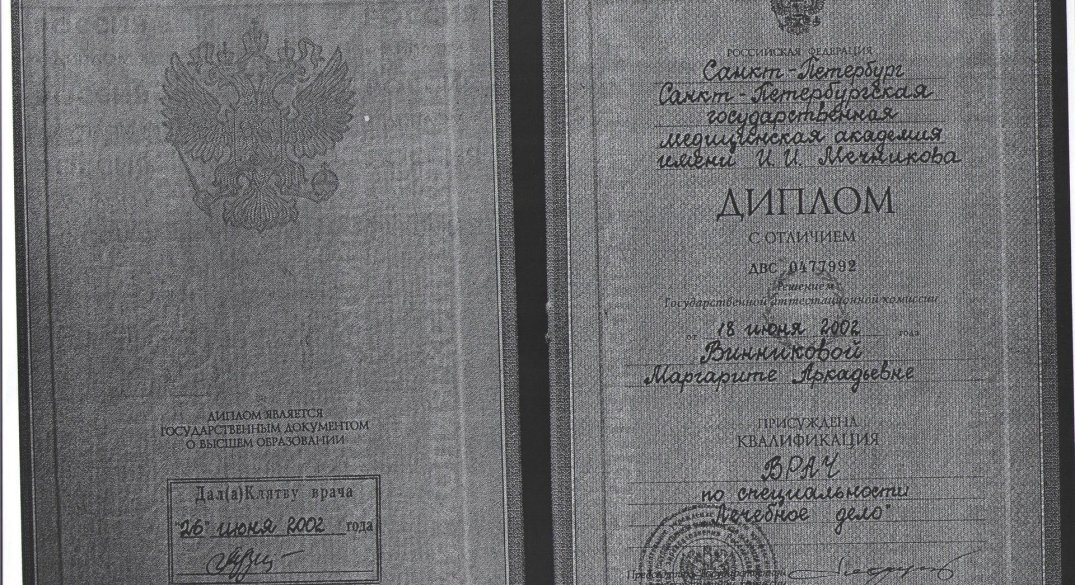 ДИПЛОМ ЯВЛЯЕТСЯ
ГОСУДАРСТВЕННЫМ ДОКУМЕНТОМ
О ВЫСШЕМ ОБРАЗОВАНИИ
Дал(а) Клятву врача
"26" июня 2002 года
РОССИЙСКАЯ ФЕДЕРАЦИЯ
Санкт-Петербург
Санкт-Петербургская
государственная
медицинская академия
имени И. И. Мечникова
ДИПЛОМ
С ОТЛИЧИЕМ
АВС 0477992
Решением
Государственной аттестационной комиссии
от 18 июня 2002 года
Винниковой
Маргарите Аркадьевне
ПРИСУЖДЕНА
КВАЛИФИКАЦИЯ
ВРАЧ
по специальности
"Лечебное дело"